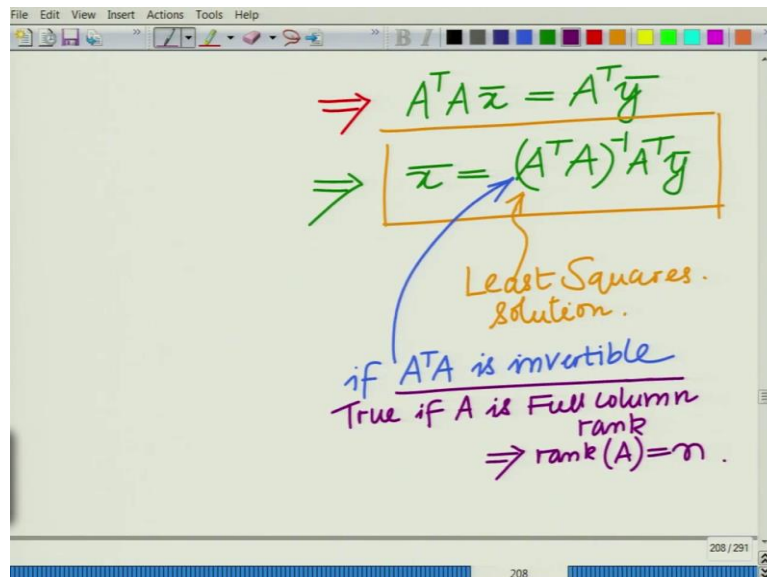 File Edit View Insert Actions Tools Help
B I
⇒ AᵀA x̄ = Aᵀȳ
⇒ x̄ = (AᵀA)⁻¹Aᵀȳ
Least Squares.
solution.
if AᵀA is invertible
True if A is Full column
rank
⇒ rank(A)=n.
208/291
208